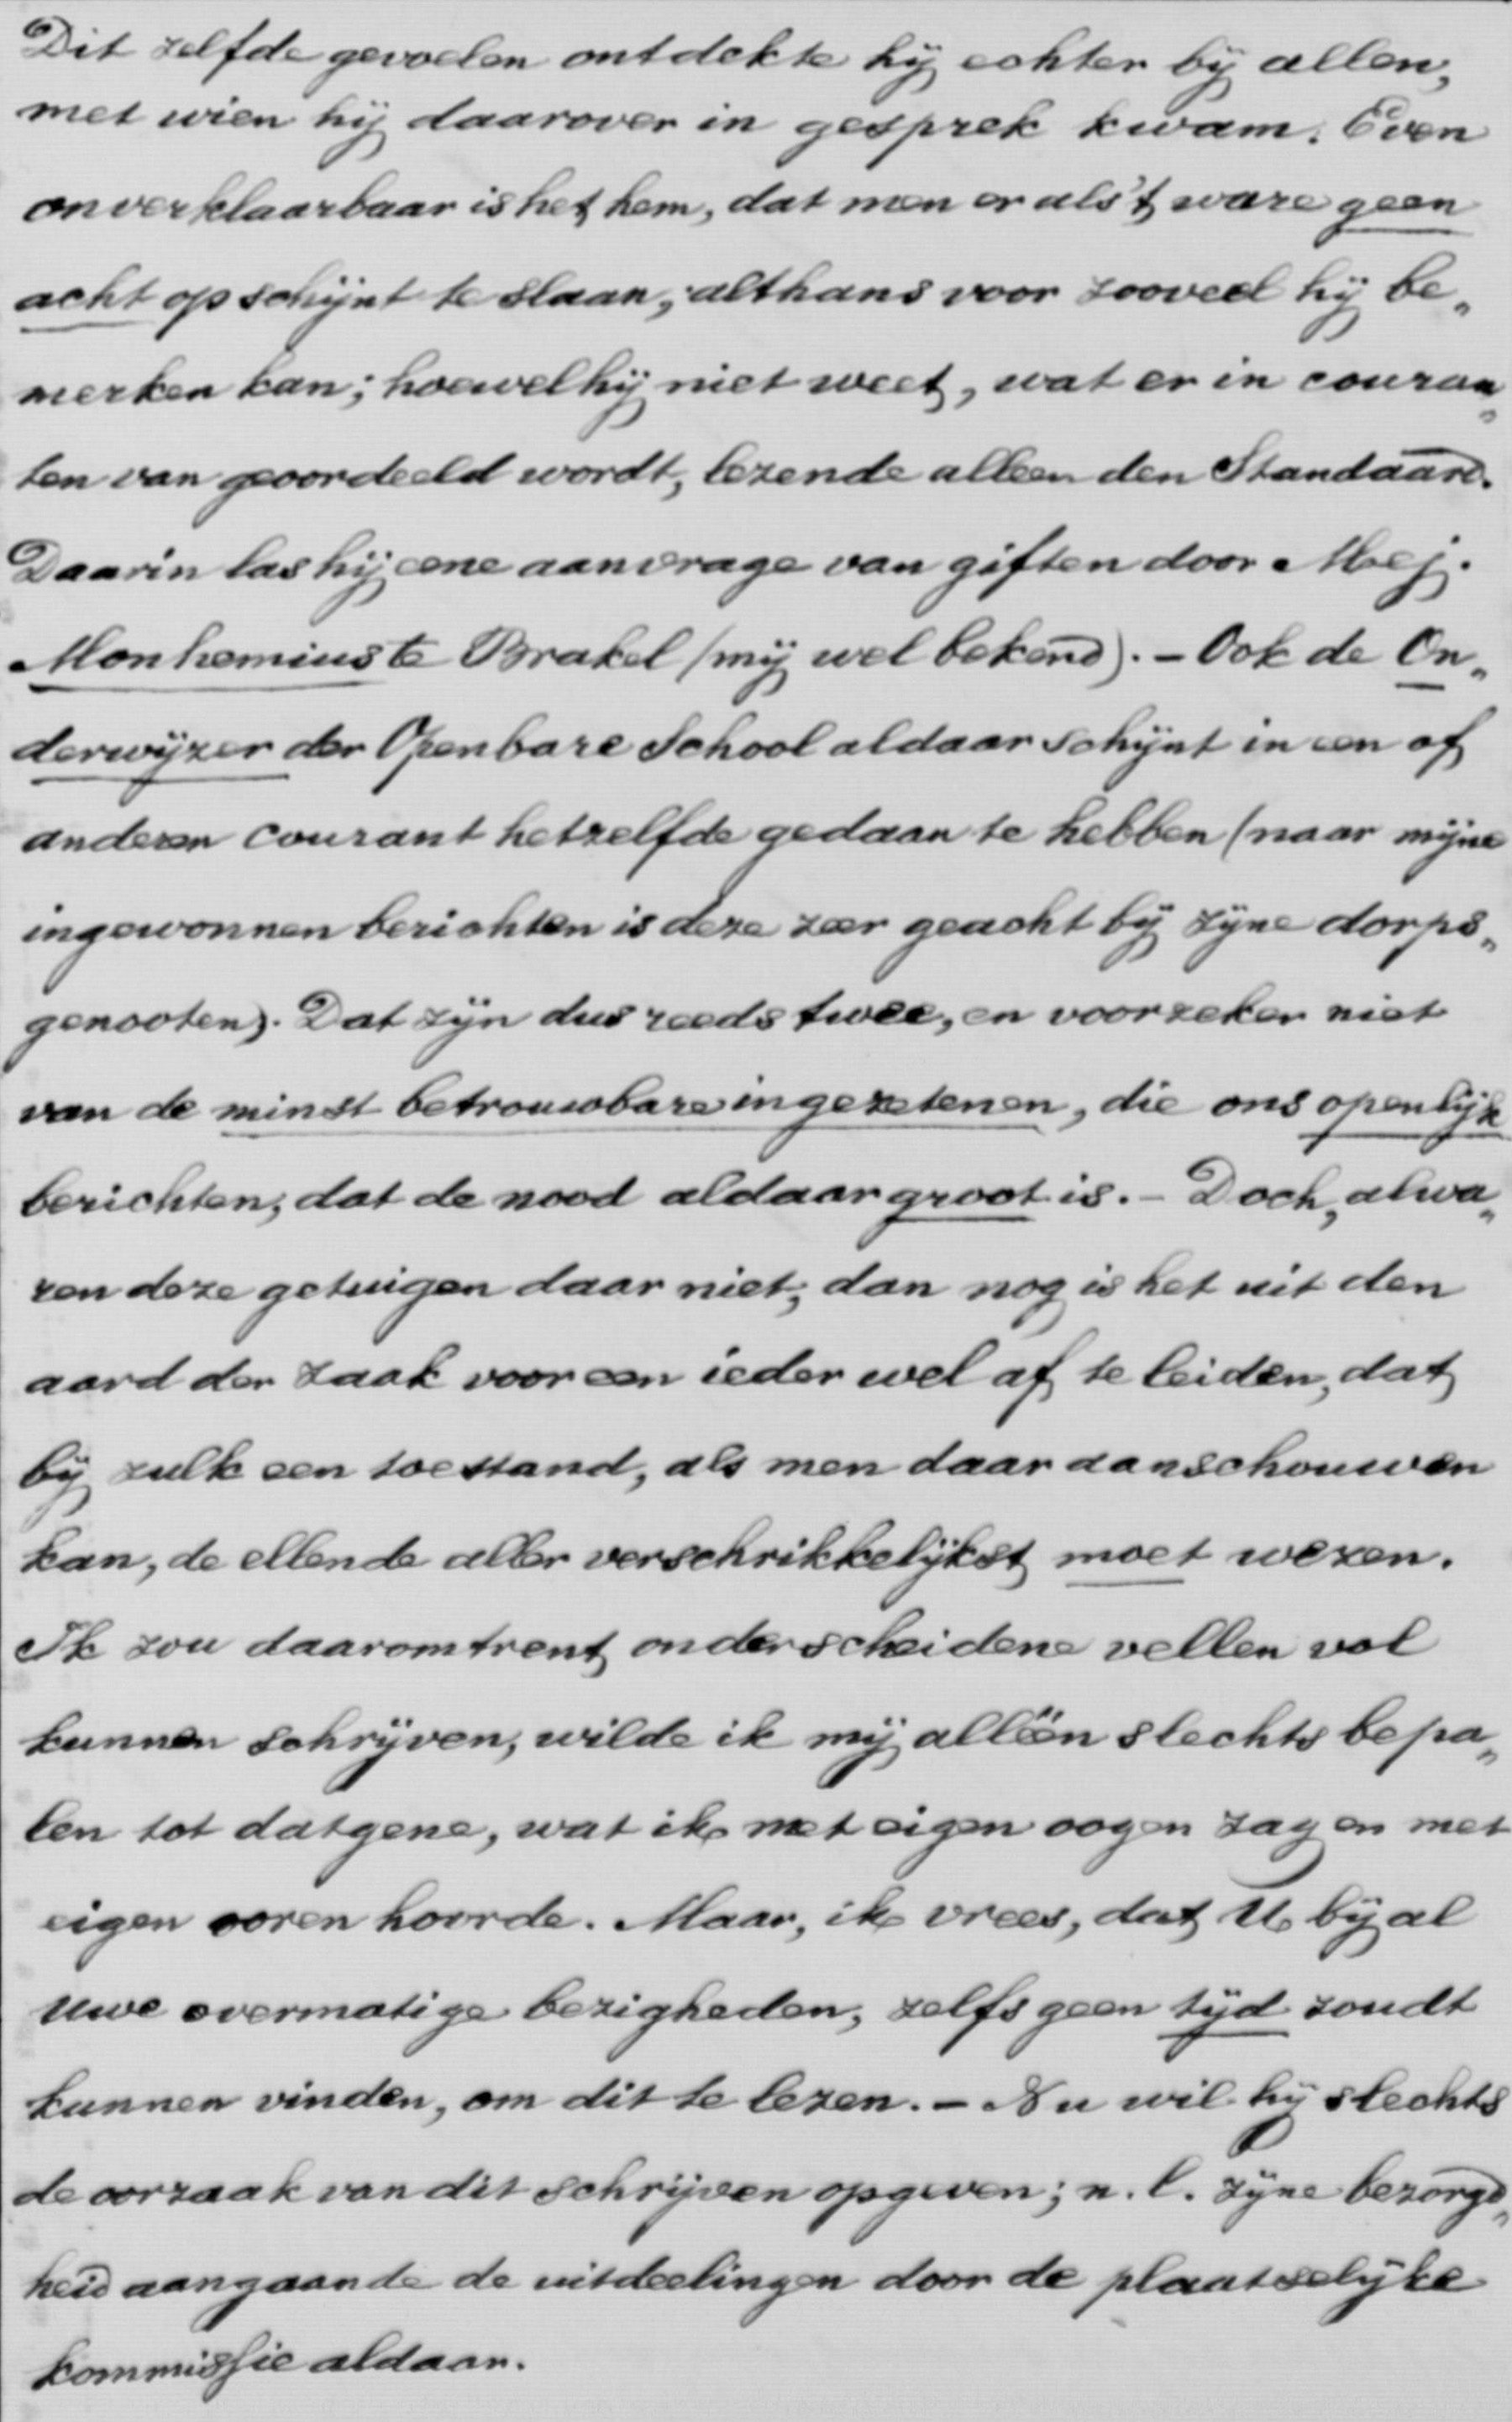 Dit zelfde gevoelen ontdekte hij echter bij allen,
met wien hij daarover in gesprek kwam. Even
onverklaarbaar is het hem, dat men er als 't ware geen
acht op schijnt te slaan, althans voor zooveel hij be„
merken kan; hoewel hij niet weet, wat er in couran„
ten van geoordeeld wordt, lezende alleen den Standaard.
Daarin las hij eene aanvrage van giften door Mej.
Monhemius te Brakel (mij wel bekend). – Ook de On„
derwijzer der Openbare School aldaar schijnt in een of
anderen courant hetzelfde gedaan te hebben (naar mijne
ingewonnen berichten is deze zeer geacht bij zijne dorps„
genooten). Dat zijn dus reeds twee, en voorzeker niet
van de minst betrouwbare ingezetenen, die ons openlijk
berichten, dat de nood aldaar groot is. – Doch, al wa„
ren deze getuigen daar niet, dan nog is het uit den
aard der zaak voor een ieder wel af te leiden, dat
bij zulk een toestand, als men daar aanschouwen
kan, de ellende aller verschrikkelijkst moet wezen.
Ik zou daaromtrent onderscheidene vellen vol
kunnen schrijven, wilde ik mij alléén slechts bepa„
len tot datgene, wat ik met eigen oogen zag en met
eigen ooren hoorde. Maar, ik vrees, dat U bij al
Uwe overmatige bezigheden, zelfs geen tijd zoudt
kunnen vinden, om dit te lezen. – Nu wil hij slechts
de oorzaak van dit schrijven opgeven; n. l. zijne bezorgd„
heid aangaande de uitdeelingen door de plaatselijke
kommissie aldaar.